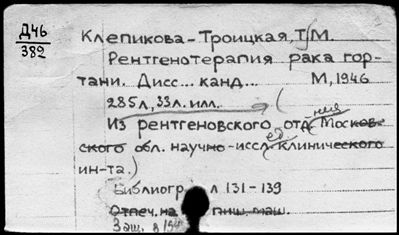 Д46
382
Клепикова-Троицкая, Т.М.
Рентгенотерапия рака гор-
тани. Дисс... канд... М, 1946
285л, 33л. илл.
Из рентгеновского отд. Москов-
ского обл. научно-иссл. клинического
ин-та.)
Библиогр. л 131-139
Отпеч. на пиш. маш.
Защ. в